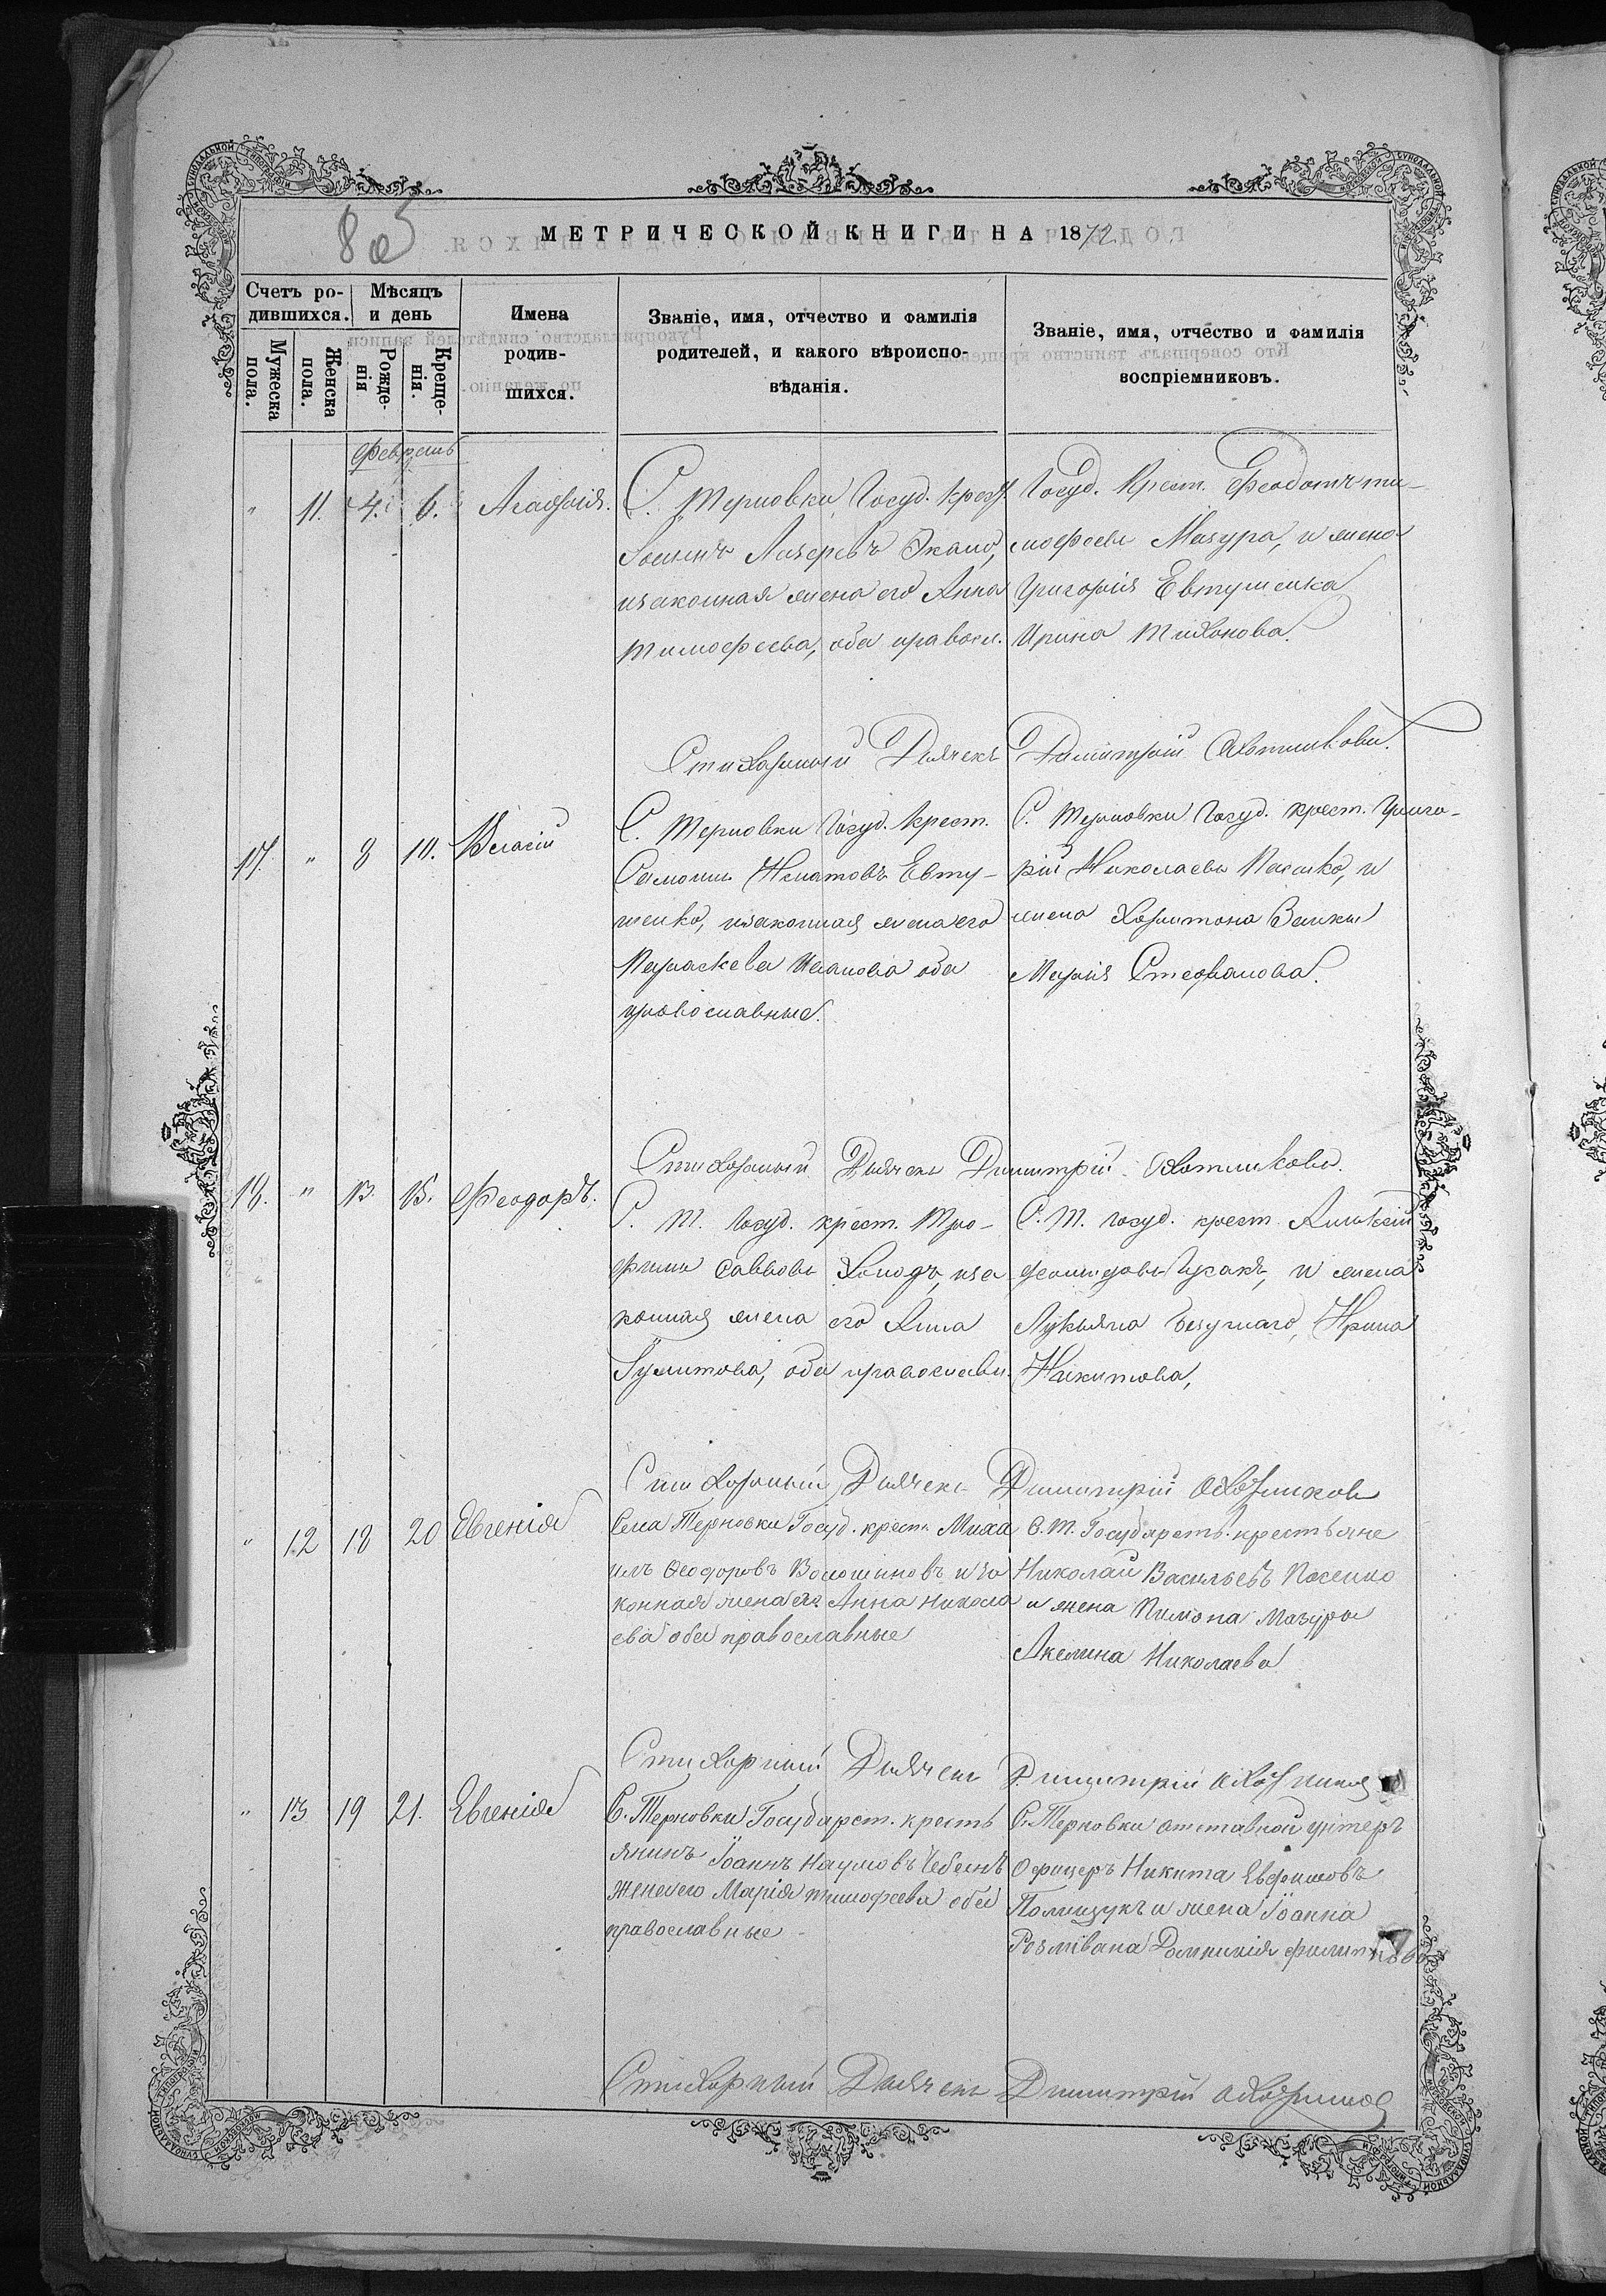 80
МЕТРИЧЕСКОЙ КНИГИ НА 1872
Счетъ ро-
дившихся.
Мужеска
пола.
Женска
пола.
Мѣсяцъ
и день
Рожде-
нія
Креще-
нія.
Имена
родив-
шихся.
Званіе, имя, отчество и фамилія
родителей, и какого вѣроиспо-
вѣданія.
Званіе, имя, отчество и фамилія
воспріемниковъ.
Февраль
" 11. 4. 6. Агафія.
С. Терновки Госуд. крест.
Іоаннъ Лазаревъ
изаконная жена его Анна
Тимофеева, оба правосл.
Госуд. Крест. Феодотъ Ти-
мофеевъ Мазура, и жена
Григорія Евтушенка
Ирина Тихонова.
Стихарный Дьячекъ Димитрій
17. " 8 10. Власій
С. Терновки Госуд. Крест.
Самонъ Игнатовъ Евту-
шенко, изаконная жена его
Параскева Иванова оба
православные.
С. Терновки Госуд. крест. Григо-
рій Николаевъ Пасенко, и
жена Харитона
Марія Стефанова.
Стихарный Дьячекъ Димитрій
18. " 13. 15. Феодоръ.
С. Т. Госуд. крест. Тро-
фимъ Саввовъ Холодъ, иза
конная жена его Анна
оба православн.
С. Т. госуд. крест. Алексій
и жена
Лукьяна Ирина
Никитова,
Стихарный Дьячекъ Димитрій
" 12 18 20 Евгенія
Села Терновки Госуд. крест. Миха
илъ Феодоровъ Волошиновъ иза
конная жена его Анна Никола
ева оба православные
С. Т. Государств. крестьяне
Николай Васильевъ Пасенко
и жена Пимона Мазура
Акелина Николаева
Стихарный Дьячекъ Димитрій
" 13 19 21. Евгенія
С. Терновки Государст. кресть
янинъ Іоаннъ Наумовъ Чебанъ
жена его Марія Тимофеева оба
православные
С. Терновки отставной унтеръ
Офицеръ Никита Евфимовъ
Полищукъ и жена Іоанна
Домникія Филиппова
Стихарный Дьячекъ Димитрій